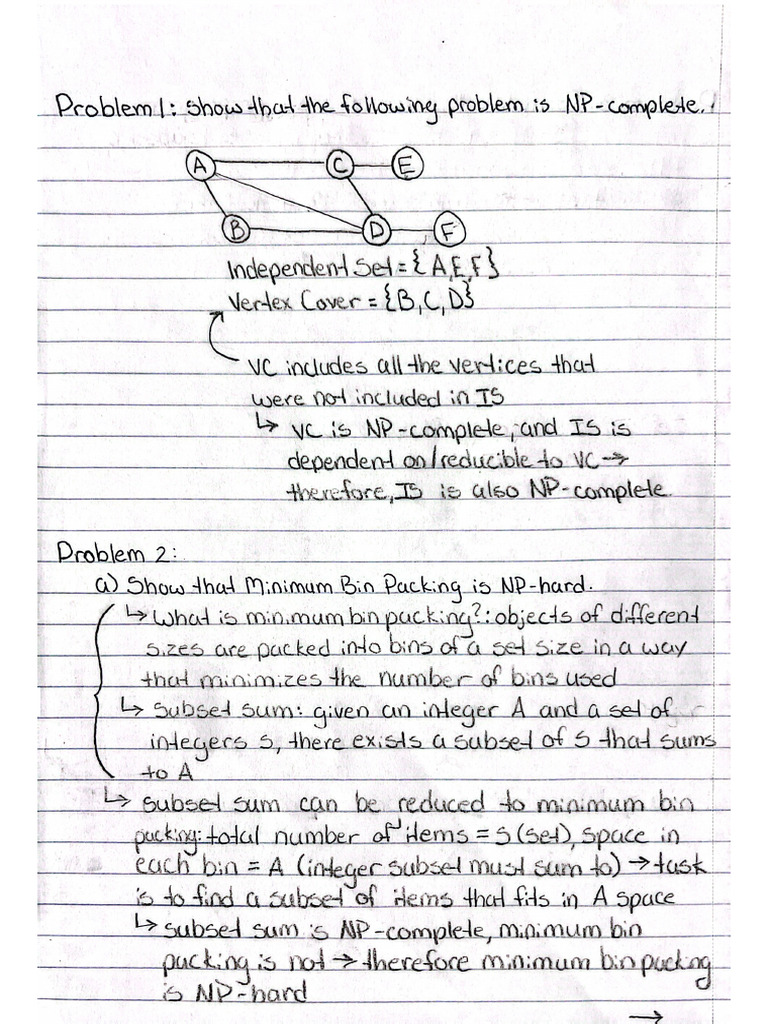 Problem 1: Show that the following problem is NP-complete.
A C E
B D F
Independent Set = {A,E,F}
Vertex Cover = {B,C,D}
VC includes all the vertices that
were not included in IS
↳ VC is NP-complete, and IS is
dependent on/reducible to VC →
therefore, IS is also NP-complete.
Problem 2:
a) Show that Minimum Bin Packing is NP-hard.
↳ What is minimum bin packing?: objects of different
sizes are packed into bins of a set size in a way
that minimizes the number of bins used
↳ subset sum: given an integer A and a set of
integers S, there exists a subset of S that sums
to A
↳ subset sum can be reduced to minimum bin
packing: total number of items = S (set), space in
each bin = A (integer subset must sum to) → task
is to find a subset of items that fits in A space
↳ subset sum is NP-complete, minimum bin
packing is not → therefore minimum bin packing
is NP-hard
→